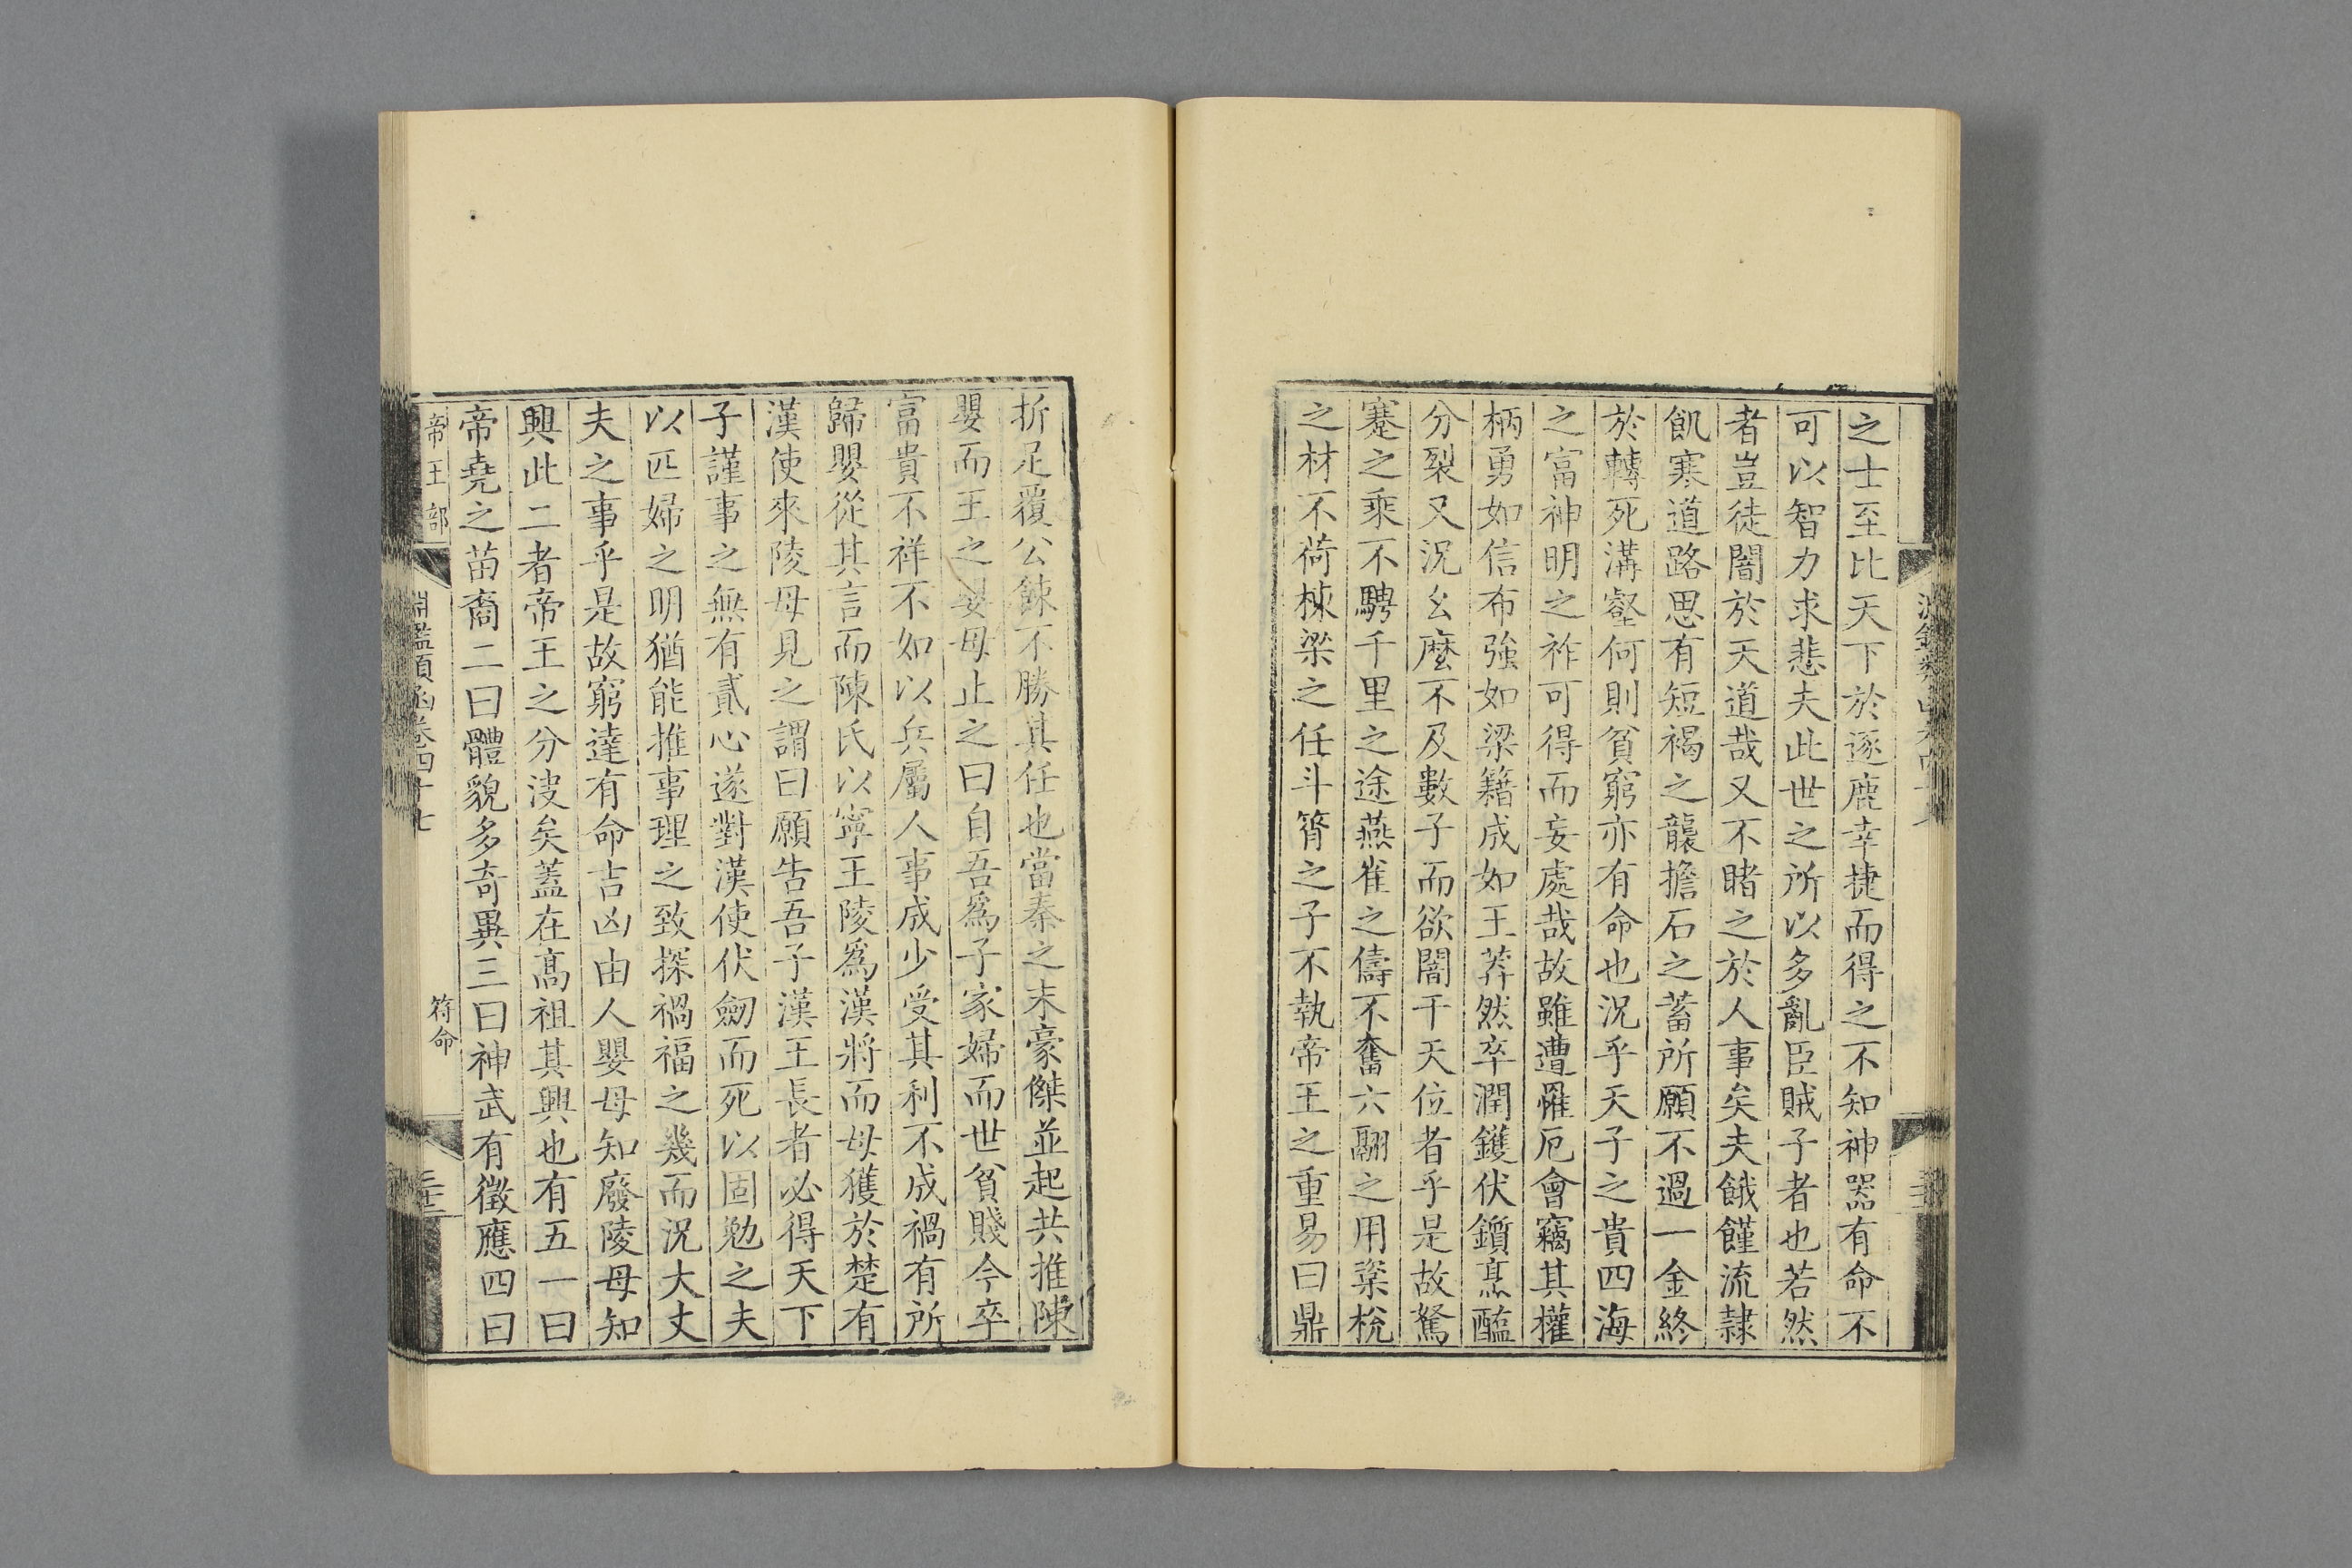 之士至比天下於逐鹿幸捷而得之不知神器有命不
可以智力求悲夫此世之所以多亂臣賊子者也若然
者豈徒闇於天道哉又不睹之於人事矣夫餓饉流隷
飢寒道路思有短褐之襲擔石之蓄所願不過一金終
於轉死溝壑何則貧窮亦有命也況乎天子之貴四海
之富神明之祚可得而妄處哉故雖遭罹厄會竊其權
柄勇如信布強如梁籍成如王莽然卒潤鑊伏鑕烹醢
分裂又況幺麼不及數子而欲闇干天位者乎是故駑
蹇之乘不騁千里之途燕雀之儔不奮六翮之用楶梲
之材不荷棟梁之任斗筲之子不執帝王之重易曰鼎
折足覆公餗不勝其任也當秦之末豪傑並起共推陳
嬰而王之嬰母止之曰自吾爲子家婦而世貧賤今卒
富貴不祥不如以兵屬人事成少受其利不成禍有所
歸嬰從其言而陳氏以寧王陵爲漢將而母獲於楚有
漢使來陵母見之謂曰願告吾子漢王長者必得天下
子謹事之無有貳心遂對漢使伏劒而死以固勉之夫
以匹婦之明猶能推事理之致探禍福之幾而況大丈
夫之事乎是故窮達有命吉凶由人嬰母知廢陵母知
興此二者帝王之分決矣蓋在高祖其興也有五一曰
帝堯之苗裔二曰體貌多奇異三曰神武有徵應四曰
帝王部
淵鑑類函卷四十七
符命